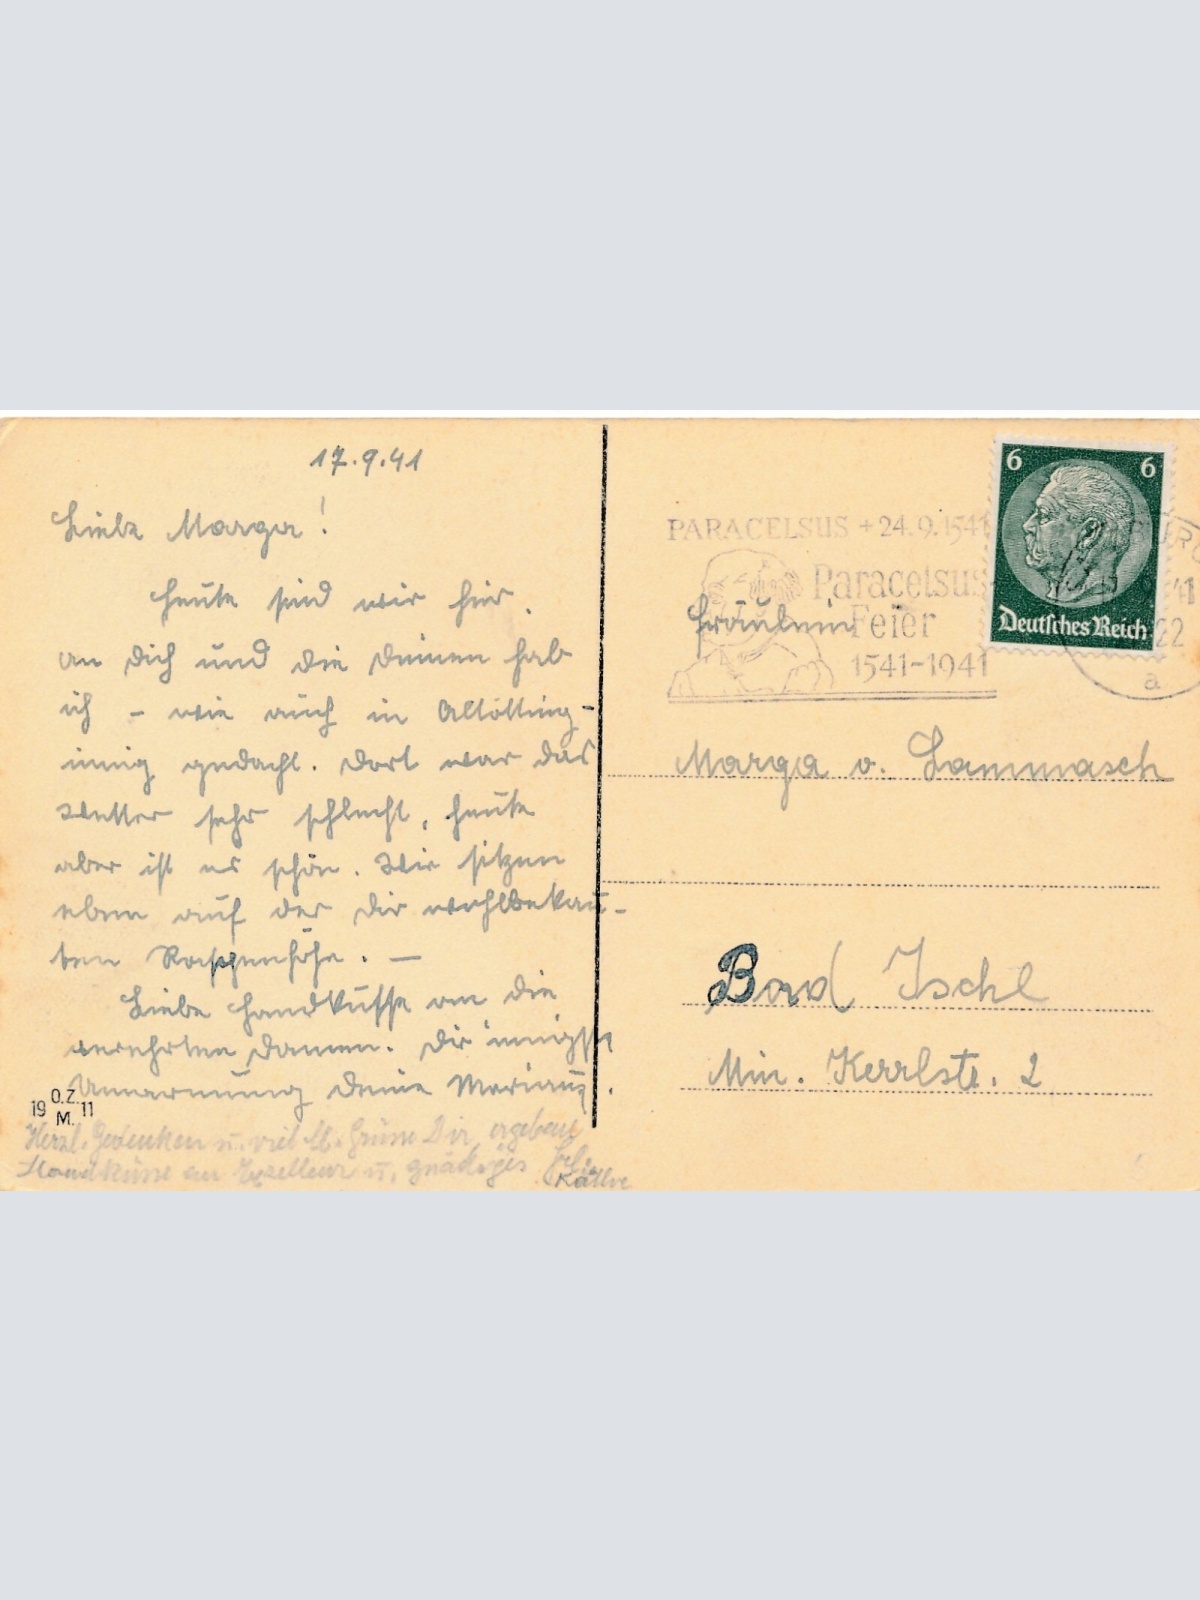 17.9.41
Liebe Marga!
Heute sind wir hier.
An Dich und die Deinen hab
ich - wie auch in Altötting -
innig gedacht. Dort war das
Wetter sehr schlecht, heute
aber ist es schön. Wir sitzen
eben auf der Dir wohlbekan-
ten
Liebe Handküsse an die
verehrten Damen. Dir innigste
Umarmung Deine
19 O.Z. 11
M.
Herzl. Gedenken u. viel lb. Grüsse Dir, ergebene
Handküsse an Exzellenz u. gnädiges Frl.
Käthe
PARACELSUS + 24.9.1541
Paracelsus
Feier
1541-1941
6 6
Deutsches Reich
41
22
a
Fräulein
Marga v. Lammasch
Bad Ischl
Min. Kerrlstr. 2